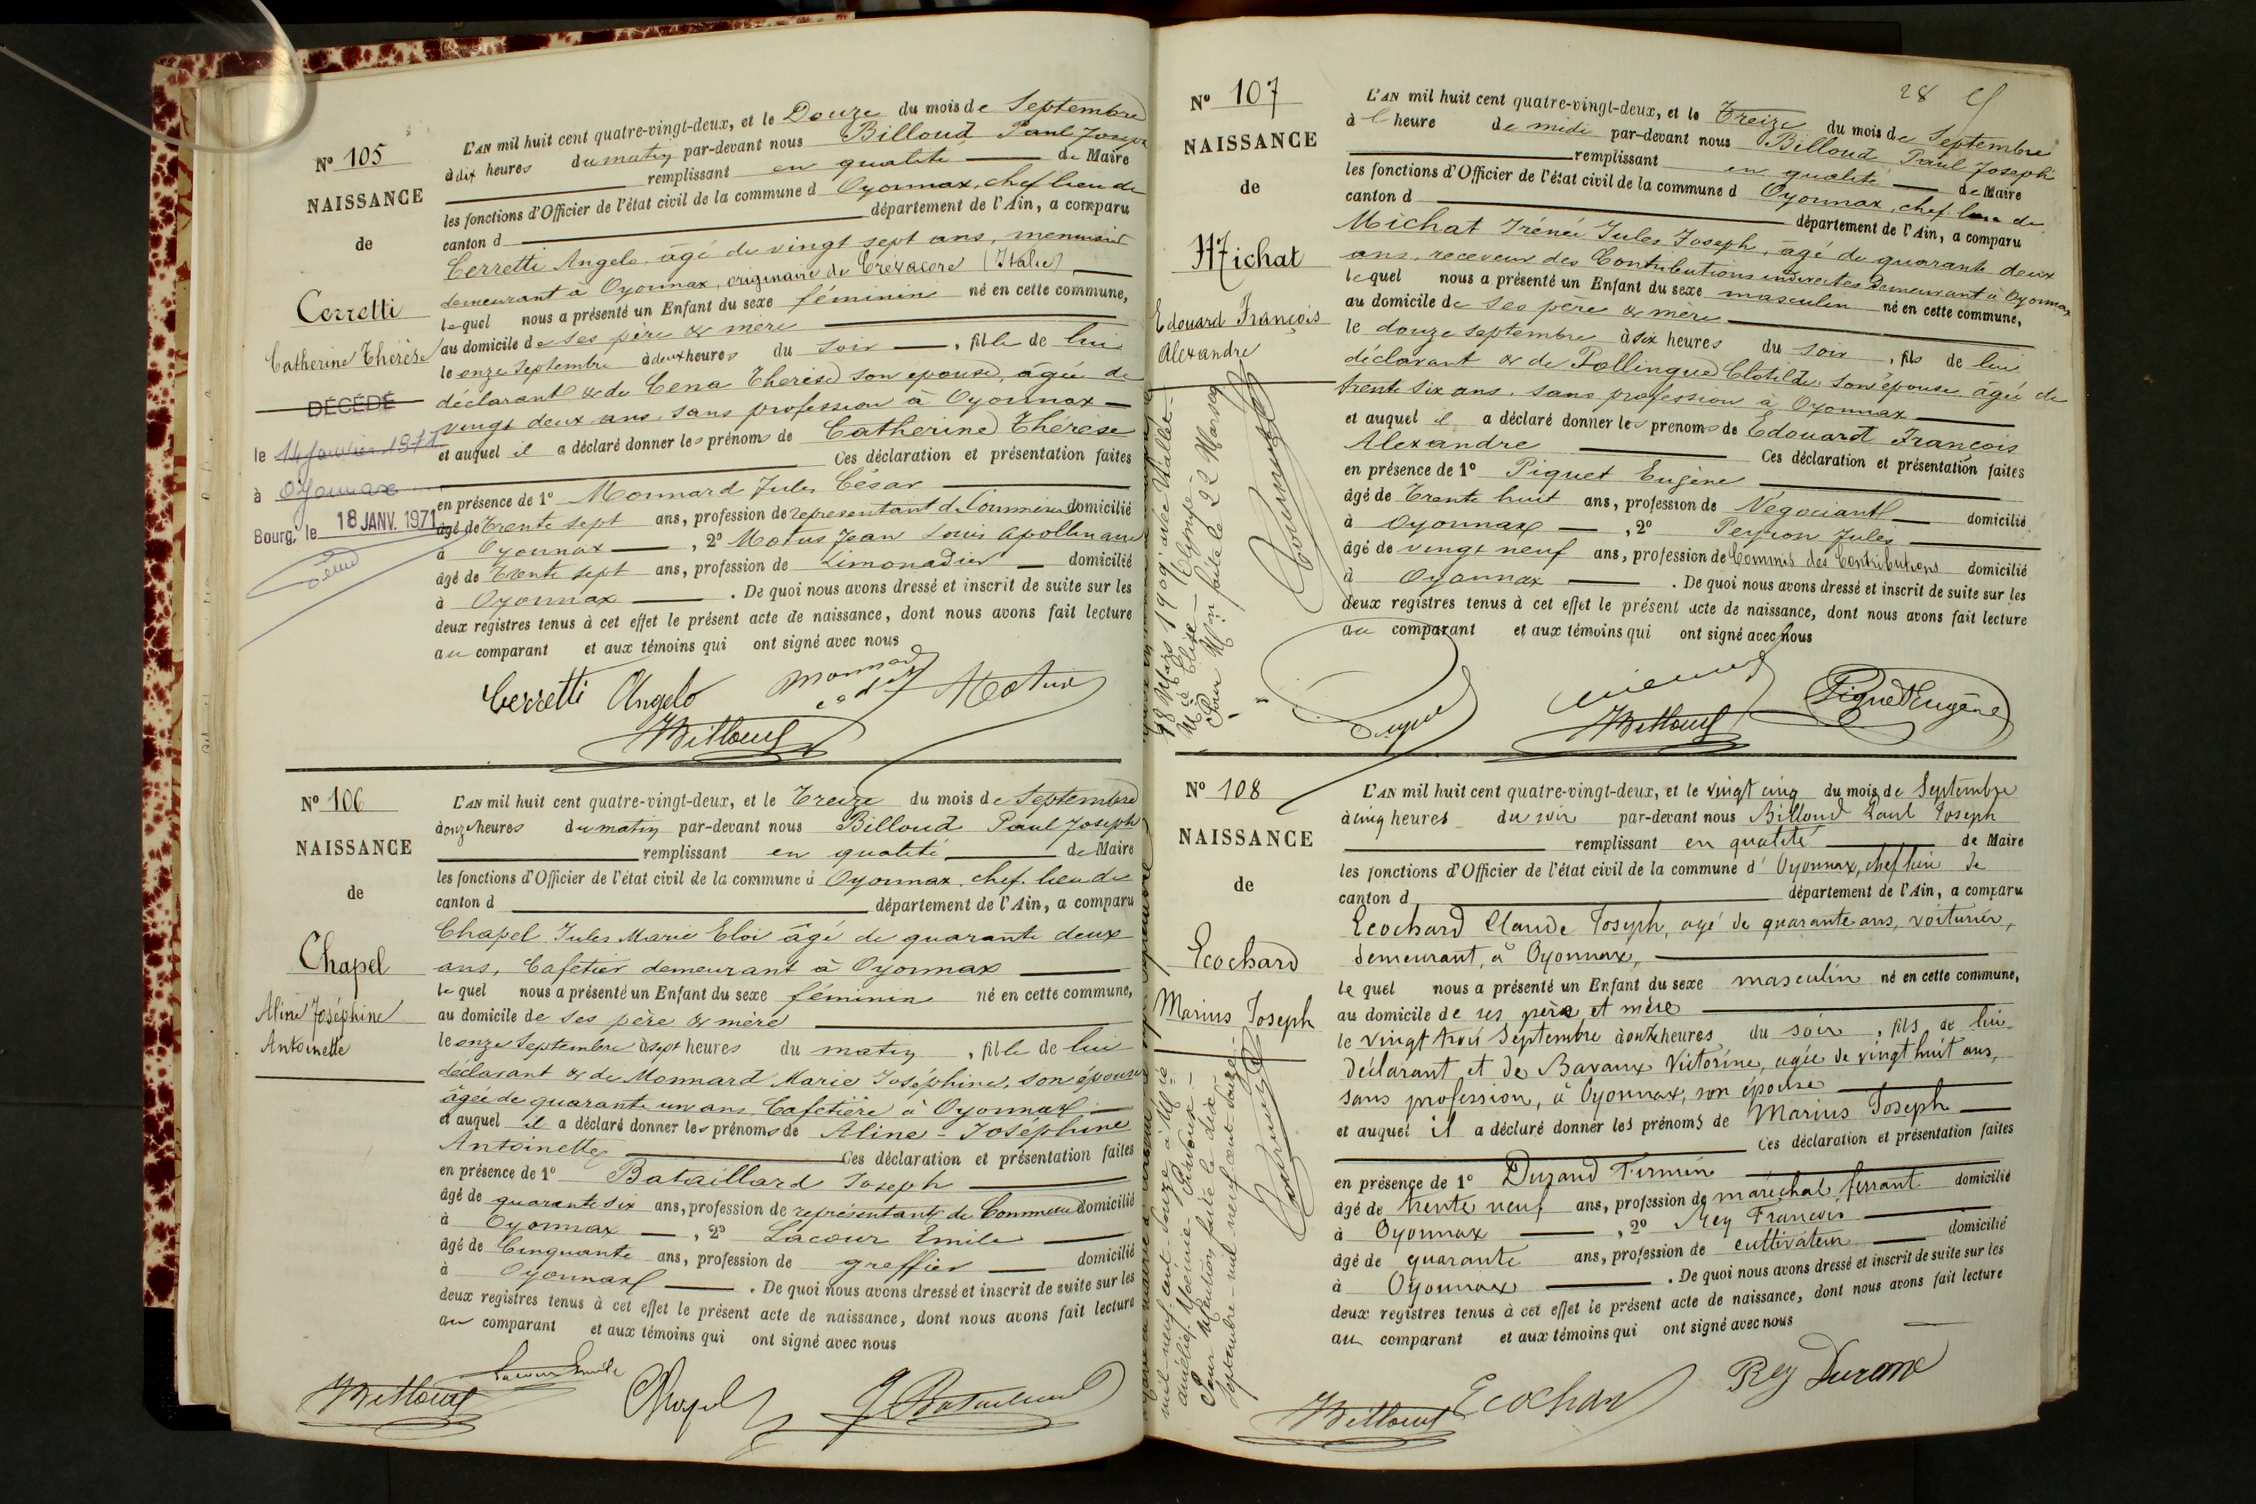 N° 105
NAISSANCE
de
Cerretti
Catherine Thérèse
DÉCÉDÉ
le 14 janvier 1971
à Oyonnax
Bourg, le 18 JANV. 1971
L'AN mil huit cent quatre-vingt-deux, et le Douze du mois de Septembre
à dix heures du matin par-devant nous Billoud Paul Joseph
remplissant en qualité de Maire
les fonctions d'Officier de l'état civil de la commune d Oyonnax, chef lieu de
canton d département de l'Ain, a comparu
Cerretti Angelo, âgé de vingt sept ans, menuisier
demeurant à Oyonnax, originaire de Crévacore (Italie)
lequel nous a présenté un Enfant du sexe féminin né en cette commune,
au domicile de ses père & mère
le onze Septembre à deux heures du soir, fille de lui
déclarant & de Cena Therèse son epouse, âgée de
vingt deux ans, sans profession à Oyonnax
et auquel il a déclaré donner les prénoms de Catherine Thérèse
Ces déclaration et présentation faites
en présence de 1° Monnard Jules César
âgé de Trente sept ans, profession de representant de Commerce domicilié
à Oyonnax, 2° Motus Jean Louis Apollinaire
âgé de Trente sept ans, profession de Limonadier domicilié
à Oyonnax. De quoi nous avons dressé et inscrit de suite sur les
deux registres tenus à cet effet le présent acte de naissance, dont nous avons fait lecture
au comparant et aux témoins qui ont signé avec nous
Cerretti Angelo
Billoud
N° 106
NAISSANCE
de
Chapel
Aline Joséphine
Antoinette
L'AN mil huit cent quatre-vingt-deux, et le Treize du mois de Septembre
à onze heures du matin par-devant nous Billoud Paul Joseph
remplissant en qualité de Maire
les fonctions d'Officier de l'état civil de la commune d Oyonnax, chef. lieu de
canton d département de l'Ain, a comparu
Chapel Jules Marie Eloi âgé de quarante deux
ans, Cafetier demeurant à Oyonnax
lequel nous a présenté un Enfant du sexe féminin né en cette commune,
au domicile de ses père & mère
le onze Septembre à sept heures du matin, fille de lui
déclarant & de Monnard Marie Joséphine, son épouse
âgée de quarante un ans, Cafetière à Oyonnax
et auquel il a déclaré donner les prénoms de Aline-Joséphine
Antoinette Ces déclaration et présentation faites
en présence de 1° Bataillard Joseph
âgé de quarante six ans, profession de représentant de Commerce domicilié
à Oyonnax, 2° Lacour Emile
âgé de Cinquante ans, profession de greffier domicilié
à Oyonnax. De quoi nous avons dressé et inscrit de suite sur les
deux registres tenus à cet effet le présent acte de naissance, dont nous avons fait lecture
au comparant et aux témoins qui ont signé avec nous
Lacour Emile
Billoud Chapel J Bataillard
28
N° 107
NAISSANCE
de
Michat
Edouard François
Alexandre
18 Mars 1909
Pour Mon faite le 22 Mars 09
L'AN mil huit cent quatre-vingt-deux, et le Treize du mois de Septembre
à l heure de midi par-devant nous Billoud Paul Joseph
remplissant en qualité de Maire
les fonctions d'Officier de l'état civil de la commune d Oyonnax, chef lieu de
canton d département de l'Ain, a comparu
Michat Irénée Jules Joseph, âgé de quarante deux
ans, receveur des Contributions indirectes demeurant à Oyonnax
lequel nous a présenté un Enfant du sexe masculin né en cette commune,
au domicile de ses père & mère
le douze septembre à six heures du soir, fils de lui
déclarant & de Pollingue Clotilde, son épouse âgée de
trente six ans, sans profession à Oyonnax
et auquel il a déclaré donner les prénoms de Edouard François
Alexandre Ces déclaration et présentation faites
en présence de 1° Piquet Eugène
âgé de Trente huit ans, profession de Négociant domicilié
à Oyonnax, 2° Peyron Jules
âgé de vingt neuf ans, profession de Commis des Contributions domicilié
à Oyonnax. De quoi nous avons dressé et inscrit de suite sur les
deux registres tenus à cet effet le présent acte de naissance, dont nous avons fait lecture
au comparant et aux témoins qui ont signé avec nous
Billoud Piquet Eugène
N° 108
NAISSANCE
de
Ecochard
Marius Joseph
Pour Mention faite le dix
Septembre mil neuf cent douze
L'AN mil huit cent quatre-vingt-deux, et le vingt cinq du mois de Septembre
à cinq heures du soir par-devant nous Billoud Paul Joseph
remplissant en qualité de Maire
les fonctions d'Officier de l'état civil de la commune d' Oyonnax, chef lieu de
canton d département de l'Ain, a comparu
Ecochard Claude Joseph, agé de quarante ans, voiturier,
demeurant, à Oyonnax,
lequel nous a présenté un Enfant du sexe masculin né en cette commune,
au domicile de ses père et mère
le vingt trois Septembre à onze heures du soir, fils de lui
déclarant et de Bavaux Victorine, agée de vingt huit ans,
sans profession, à Oyonnax, son épouse
et auquel il a déclaré donner les prénoms de Marius Joseph
Ces déclaration et présentation faites
en présence de 1° Durand Firmin
âgé de trente neuf ans, profession de maréchal ferrant domicilié
à Oyonnax, 2° Rey François
âgé de quarante ans, profession de cultivateur domicilié
à Oyonnax. De quoi nous avons dressé et inscrit de suite sur les
deux registres tenus à cet effet le présent acte de naissance, dont nous avons fait lecture
au comparant et aux témoins qui ont signé avec nous
Billoud Ecochard Rey Durand